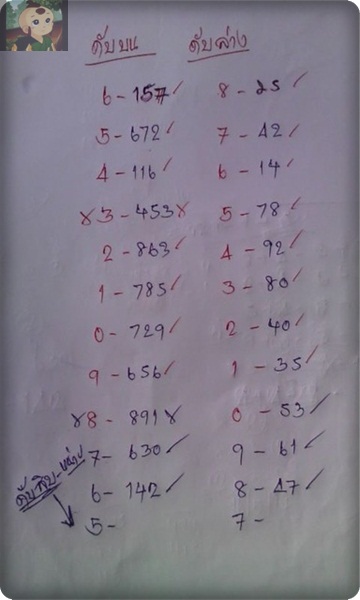 ดับบน ดับล่าง
6 - 157 ✓ 8 - 25 ✓
5 - 672 ✓ 7 - 42 ✓
4 - 116 ✓ 6 - 14 ✓
x 3 - 453 x 5 - 78 ✓
2 - 863 ✓ 4 - 92 ✓
1 - 785 ✓ 3 - 80 ✓
0 - 729 ✓ 2 - 40 ✓
9 - 656 ✓ 1 - 35 ✓
x 8 - 891 x 0 - 53 ✓
7 - 630 ✓ 9 - 61 ✓
6 - 142 ✓ 8 - 47 ✓
5 - 7 -